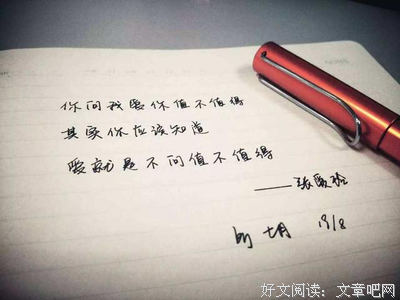 你问我爱你值不值得
其实你应该知道
爱就是不问值不值得
——张爱玲
by 七月 19/8
好文阅读：文章吧网